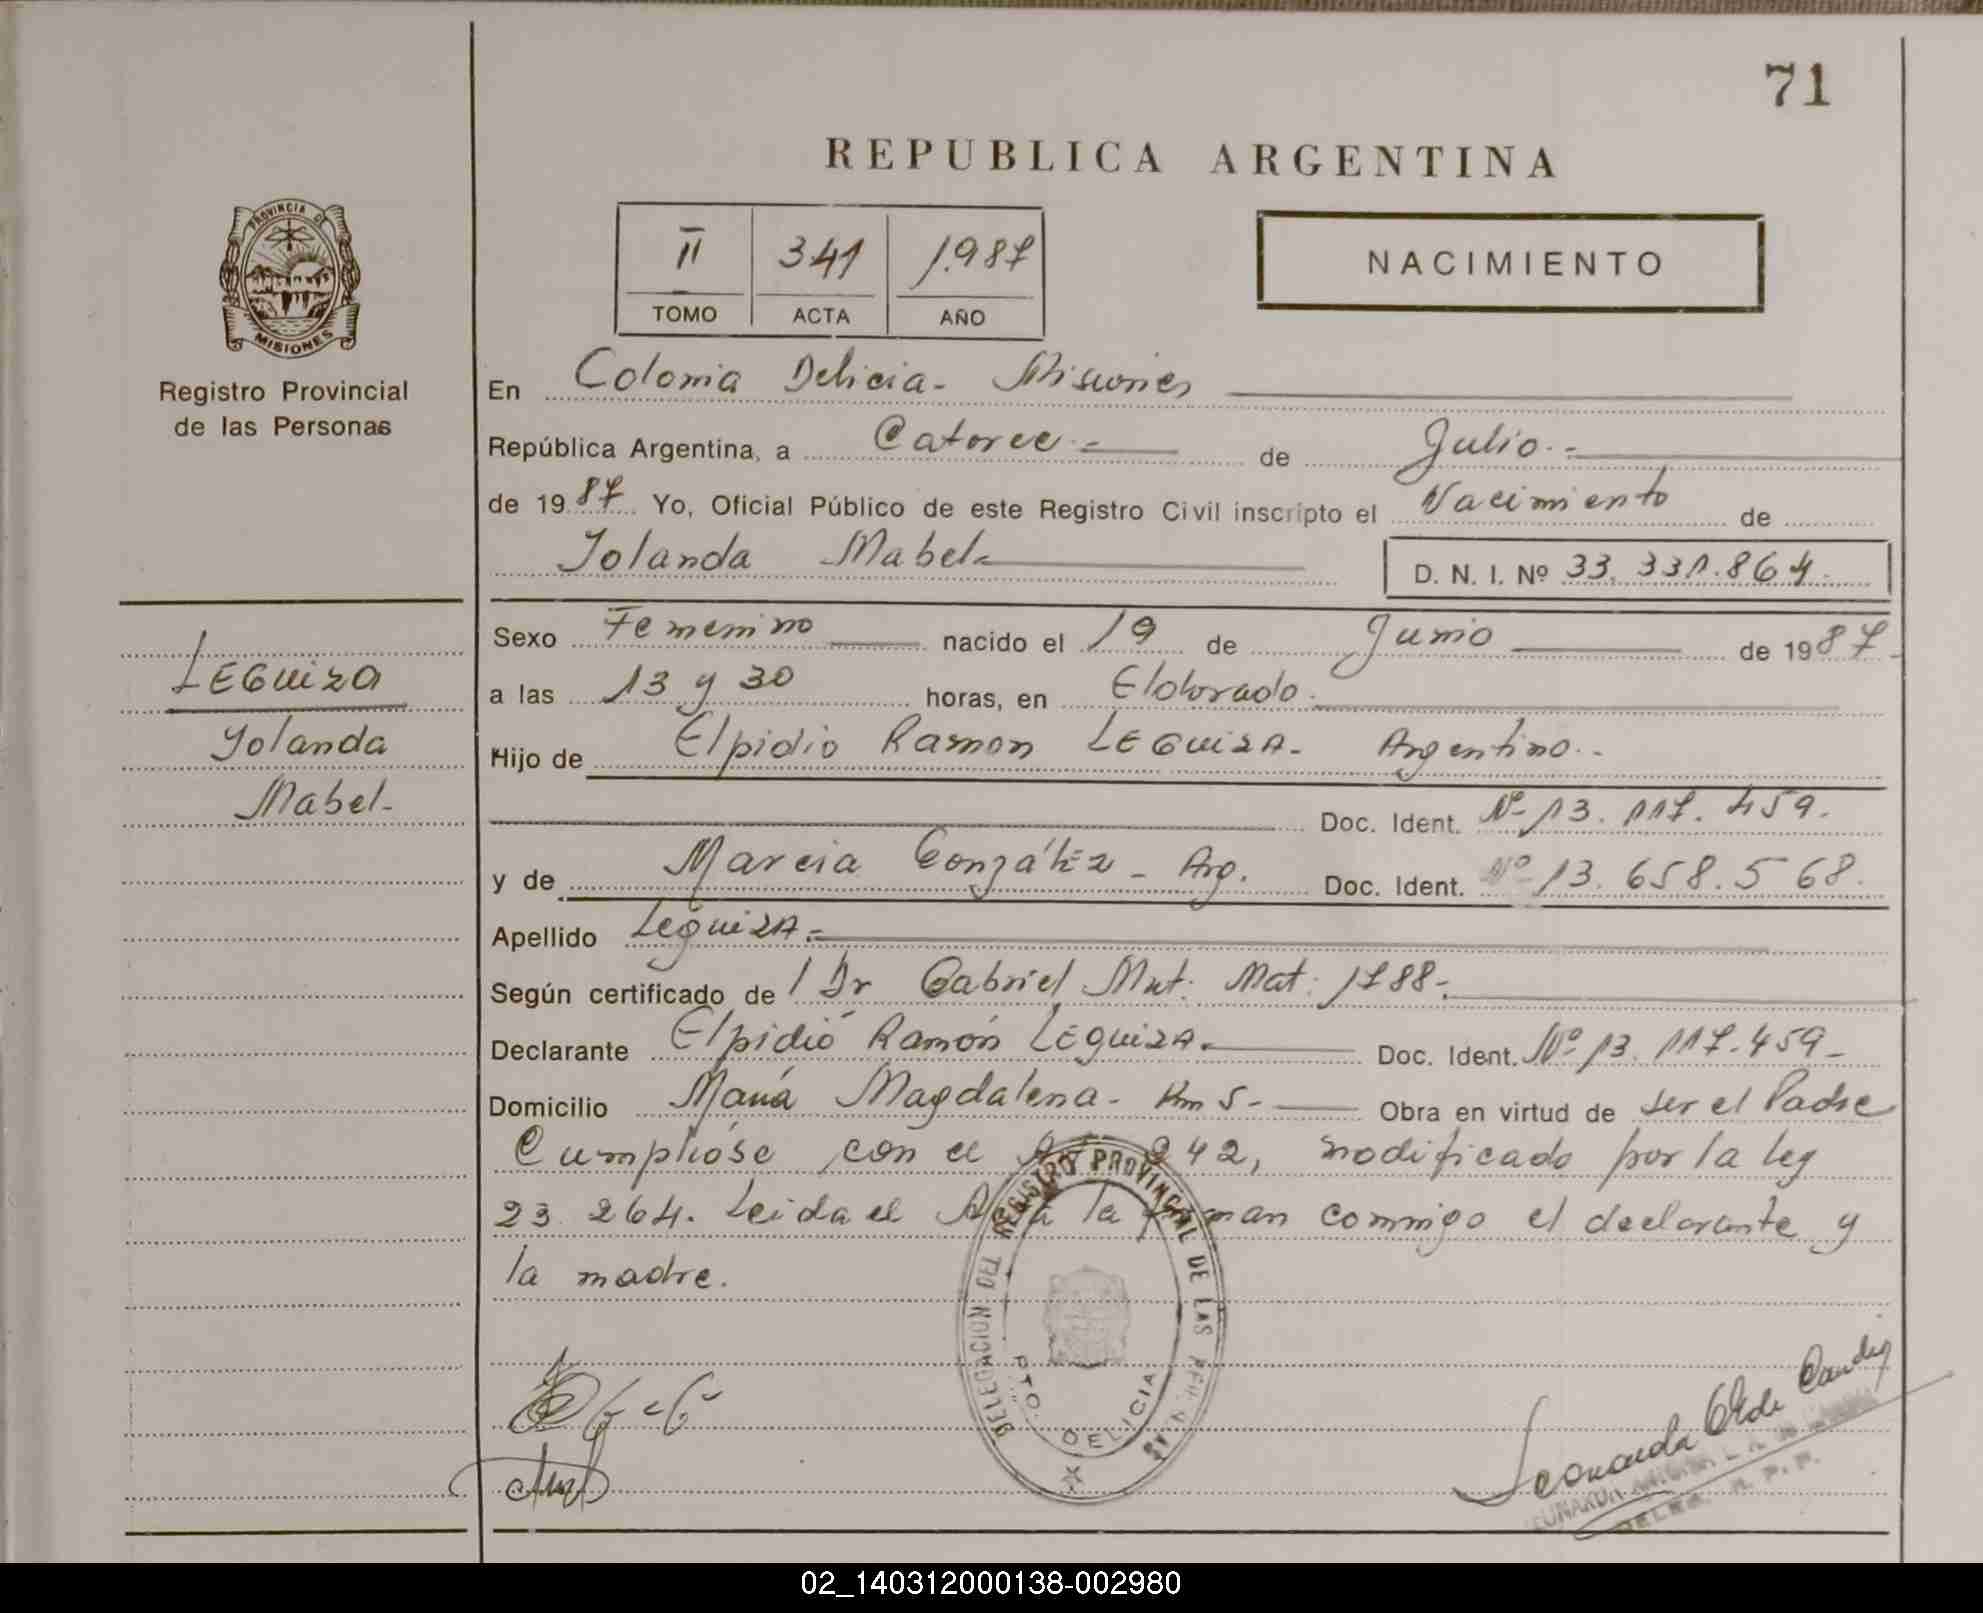 71
REPUBLICA ARGENTINA
II 341 1.987
TOMO ACTA AÑO
NACIMIENTO
PROVINCIA DE
MISIONES
Registro Provincial
de las Personas
En Colonia Delicia - Misiones
República Argentina, a Catorce.- de Julio.-
de 1987 Yo, Oficial Público de este Registro Civil inscripto el Nacimiento de
Yolanda Mabel- D. N. I. Nº 33.331.864.
LEGUIZA
Yolanda
Mabel-
Sexo Femenino nacido el 19 de Junio de 1987.
a las 13 y 30 horas, en Eldorado.
Hijo de Elpidio Ramon LEGUIZA- Argentino.-
Doc. Ident. Nº 13.117.459.
y de Marcia González - Arg. Doc. Ident. Nº 13.658.568.
Apellido Leguiza.-
Según certificado de l Dr Gabriel Mat: 1788.-
Declarante Elpidio Ramón Leguiza.- Doc. Ident. Nº 13.117.459-
Domicilio María Magdalena - Km 5- Obra en virtud de ser el Padre
Cumplióse con el 242, modificado por la ley
23.264. Leida el Acta la firman conmigo el declarante y
la madre.
DELEGACION DEL REGISTRO PROVINCIAL DE LAS
PTO. DELICIA
02_140312000138-002980